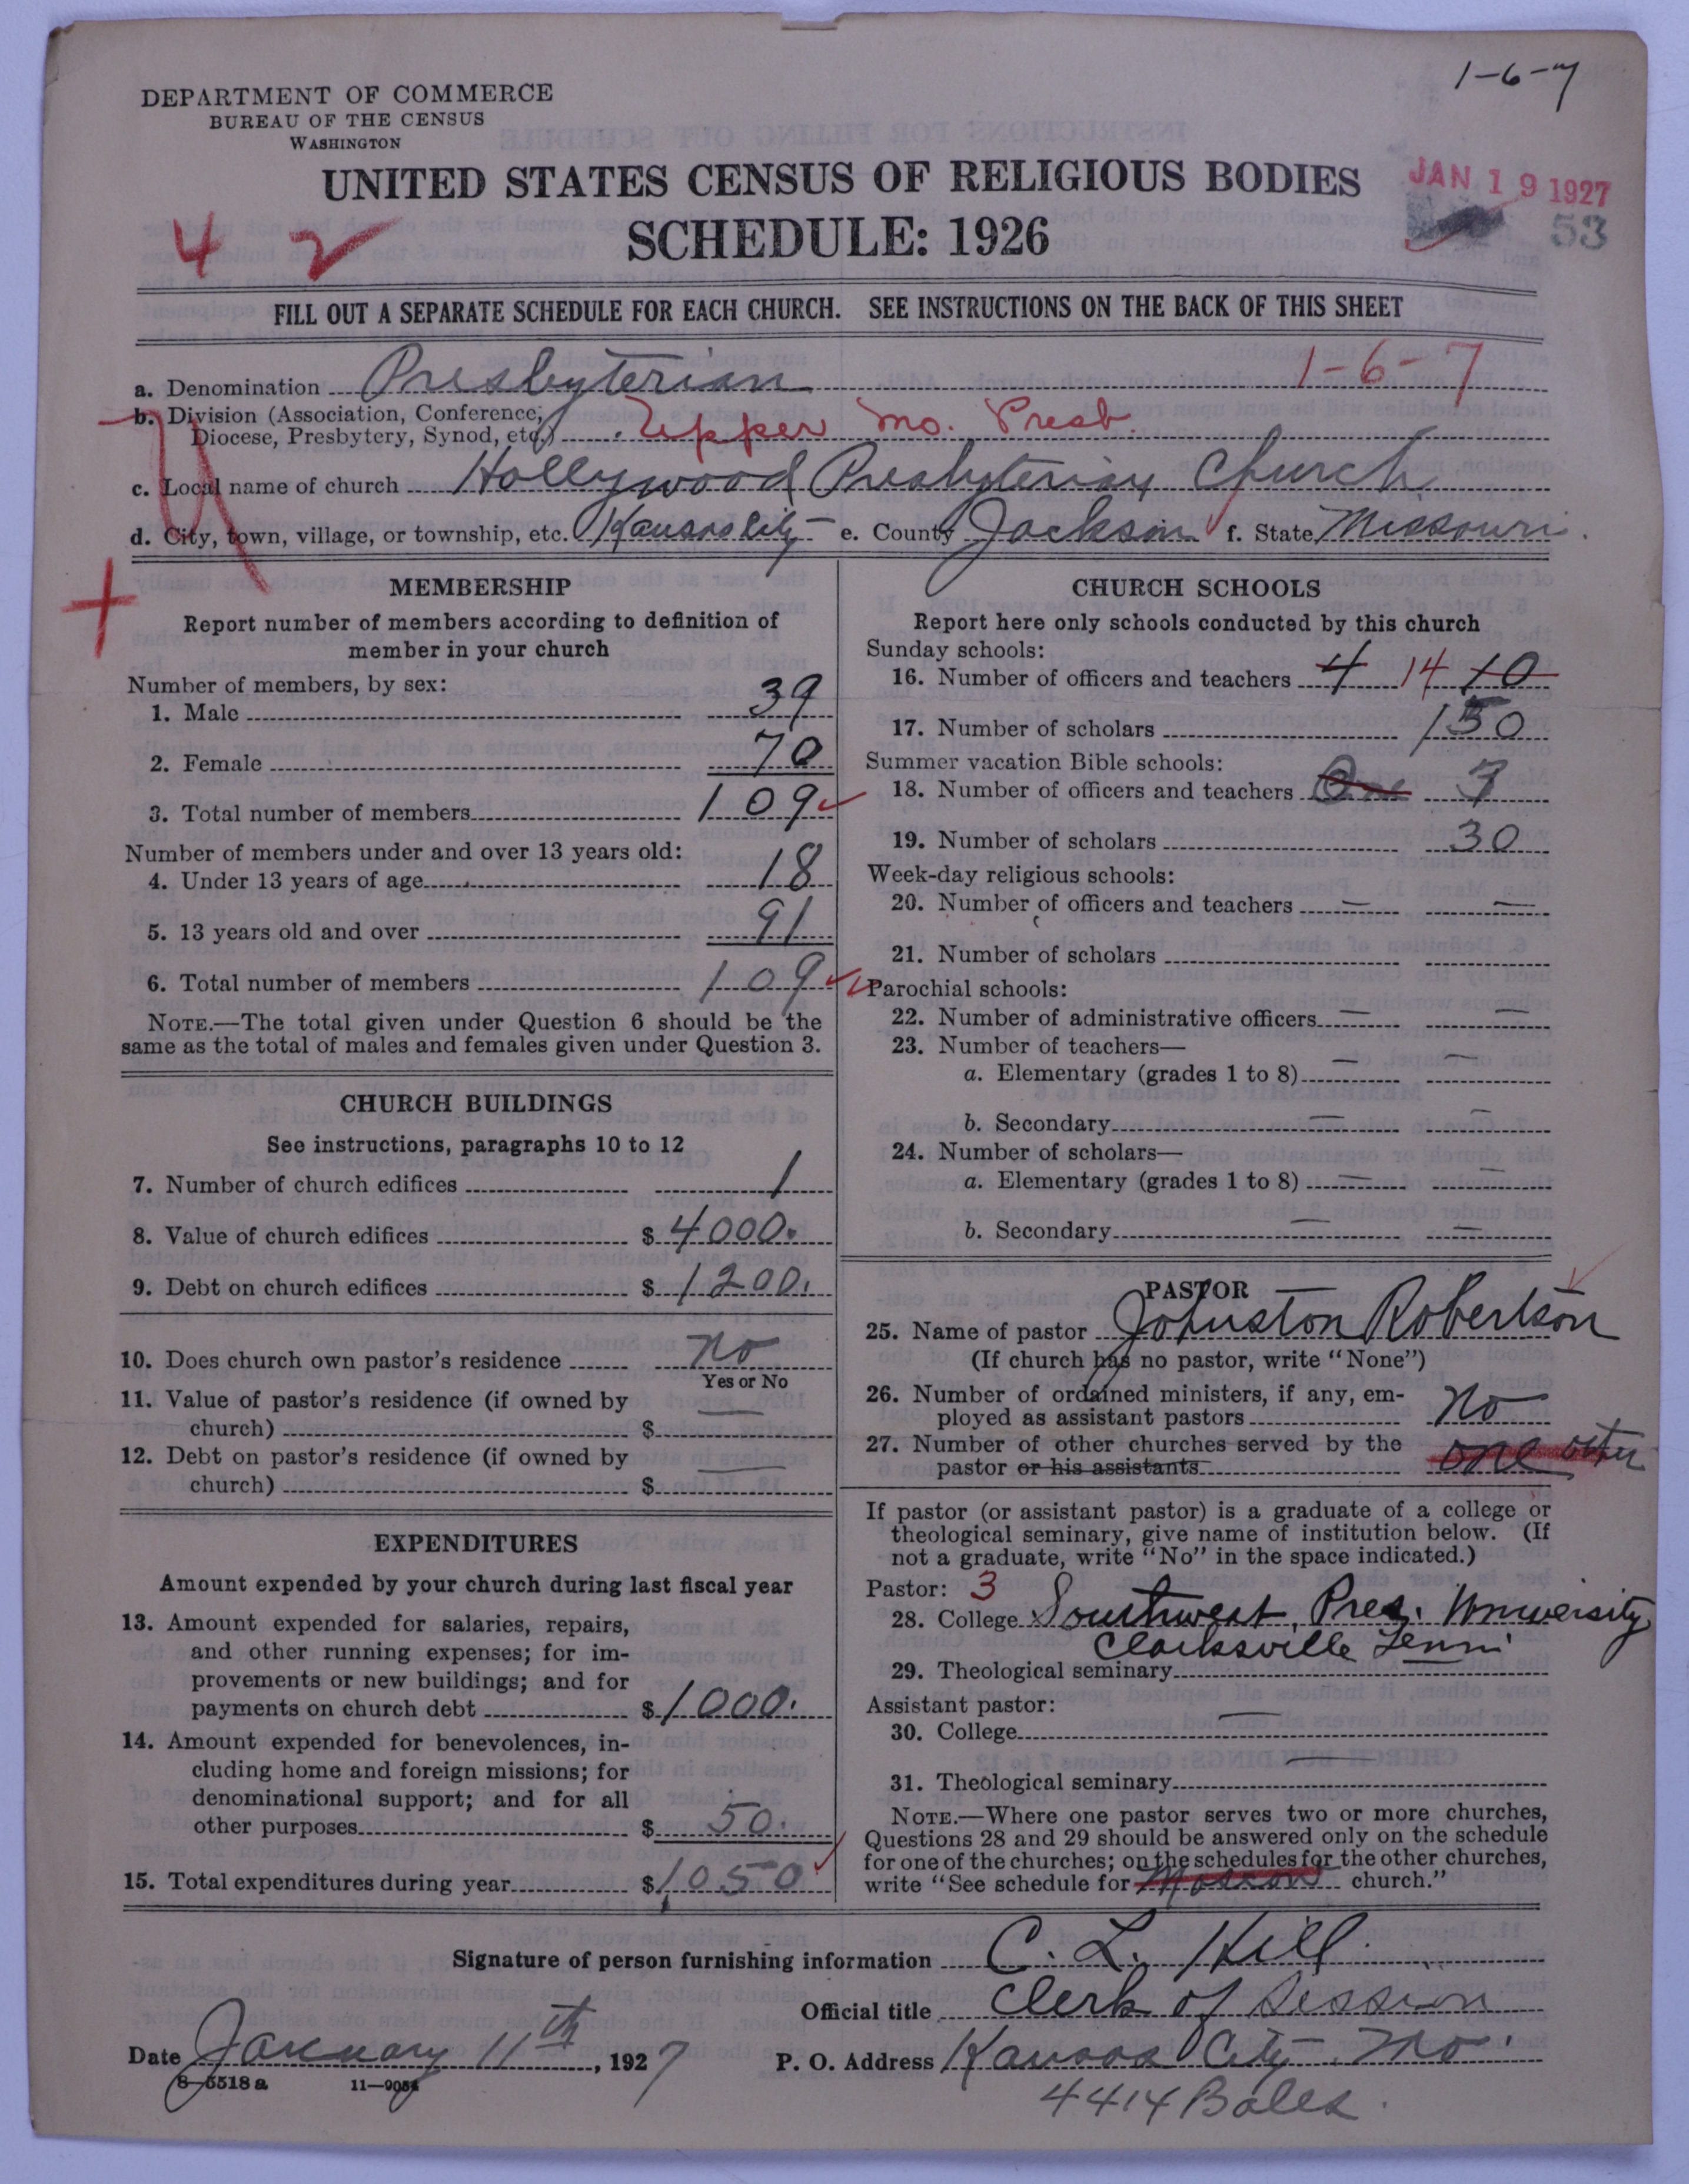 1-6-7
DEPARTMENT OF COMMERCE
BUREAU OF THE CENSUS
WASHINGTON
UNITED STATES CENSUS OF RELIGIOUS BODIES
SCHEDULE: 1926
JAN 19 1927
53
4 2
FILL OUT A SEPARATE SCHEDULE FOR EACH CHURCH. SEE INSTRUCTIONS ON THE BACK OF THIS SHEET
a. Denomination Presbyterian 1-6-7
b. Division (Association, Conference,
Diocese, Presbytery, Synod, etc.) Upper Mo. Presb.
c. Local name of church Hollywood Presbyterian Church
d. City, town, village, or township, etc. Kansas City e. County Jackson f. State Missouri.
MEMBERSHIP
Report number of members according to definition of
member in your church
Number of members, by sex:
1. Male 39
2. Female 70
3. Total number of members 109
Number of members under and over 13 years old:
4. Under 13 years of age 18
5. 13 years old and over 91
6. Total number of members 109
NOTE.—The total given under Question 6 should be the
same as the total of males and females given under Question 3.
CHURCH BUILDINGS
See instructions, paragraphs 10 to 12
7. Number of church edifices 1
8. Value of church edifices $ 4000.
9. Debt on church edifices $ 1200.
10. Does church own pastor's residence no
Yes or No
11. Value of pastor's residence (if owned by
church) $ —
12. Debt on pastor's residence (if owned by
church) $ —
EXPENDITURES
Amount expended by your church during last fiscal year
13. Amount expended for salaries, repairs,
and other running expenses; for im-
provements or new buildings; and for
payments on church debt $ 1000.
14. Amount expended for benevolences, in-
cluding home and foreign missions; for
denominational support; and for all
other purposes $ 50.
15. Total expenditures during year $ 1,050
CHURCH SCHOOLS
Report here only schools conducted by this church
Sunday schools:
16. Number of officers and teachers 4 14 10
17. Number of scholars 150
Summer vacation Bible schools:
18. Number of officers and teachers One 3
19. Number of scholars 30
Week-day religious schools:
20. Number of officers and teachers — —
21. Number of scholars
Parochial schools:
22. Number of administrative officers — —
23. Number of teachers—
a. Elementary (grades 1 to 8) — —
b. Secondary — —
24. Number of scholars—
a. Elementary (grades 1 to 8) — —
b. Secondary — —
PASTOR
25. Name of pastor Johnston Robertson
(If church has no pastor, write "None")
26. Number of ordained ministers, if any, em-
ployed as assistant pastors no
27. Number of other churches served by the
pastor or his assistants one other
If pastor (or assistant pastor) is a graduate of a college or
theological seminary, give name of institution below. (If
not a graduate, write "No" in the space indicated.)
Pastor: 3
28. College Southwest. Pres. University
Clarksville Tenn
29. Theological seminary
Assistant pastor:
30. College —
31. Theological seminary —
NOTE.—Where one pastor serves two or more churches,
Questions 28 and 29 should be answered only on the schedule
for one of the churches; on the schedules for the other churches,
write "See schedule for church."
Signature of person furnishing information C. L. Hill.
Official title Clerk of Session
Date January 11th, 1927 P. O. Address Kansas City Mo.
8-5518 a 11-9054
4414 Bales.